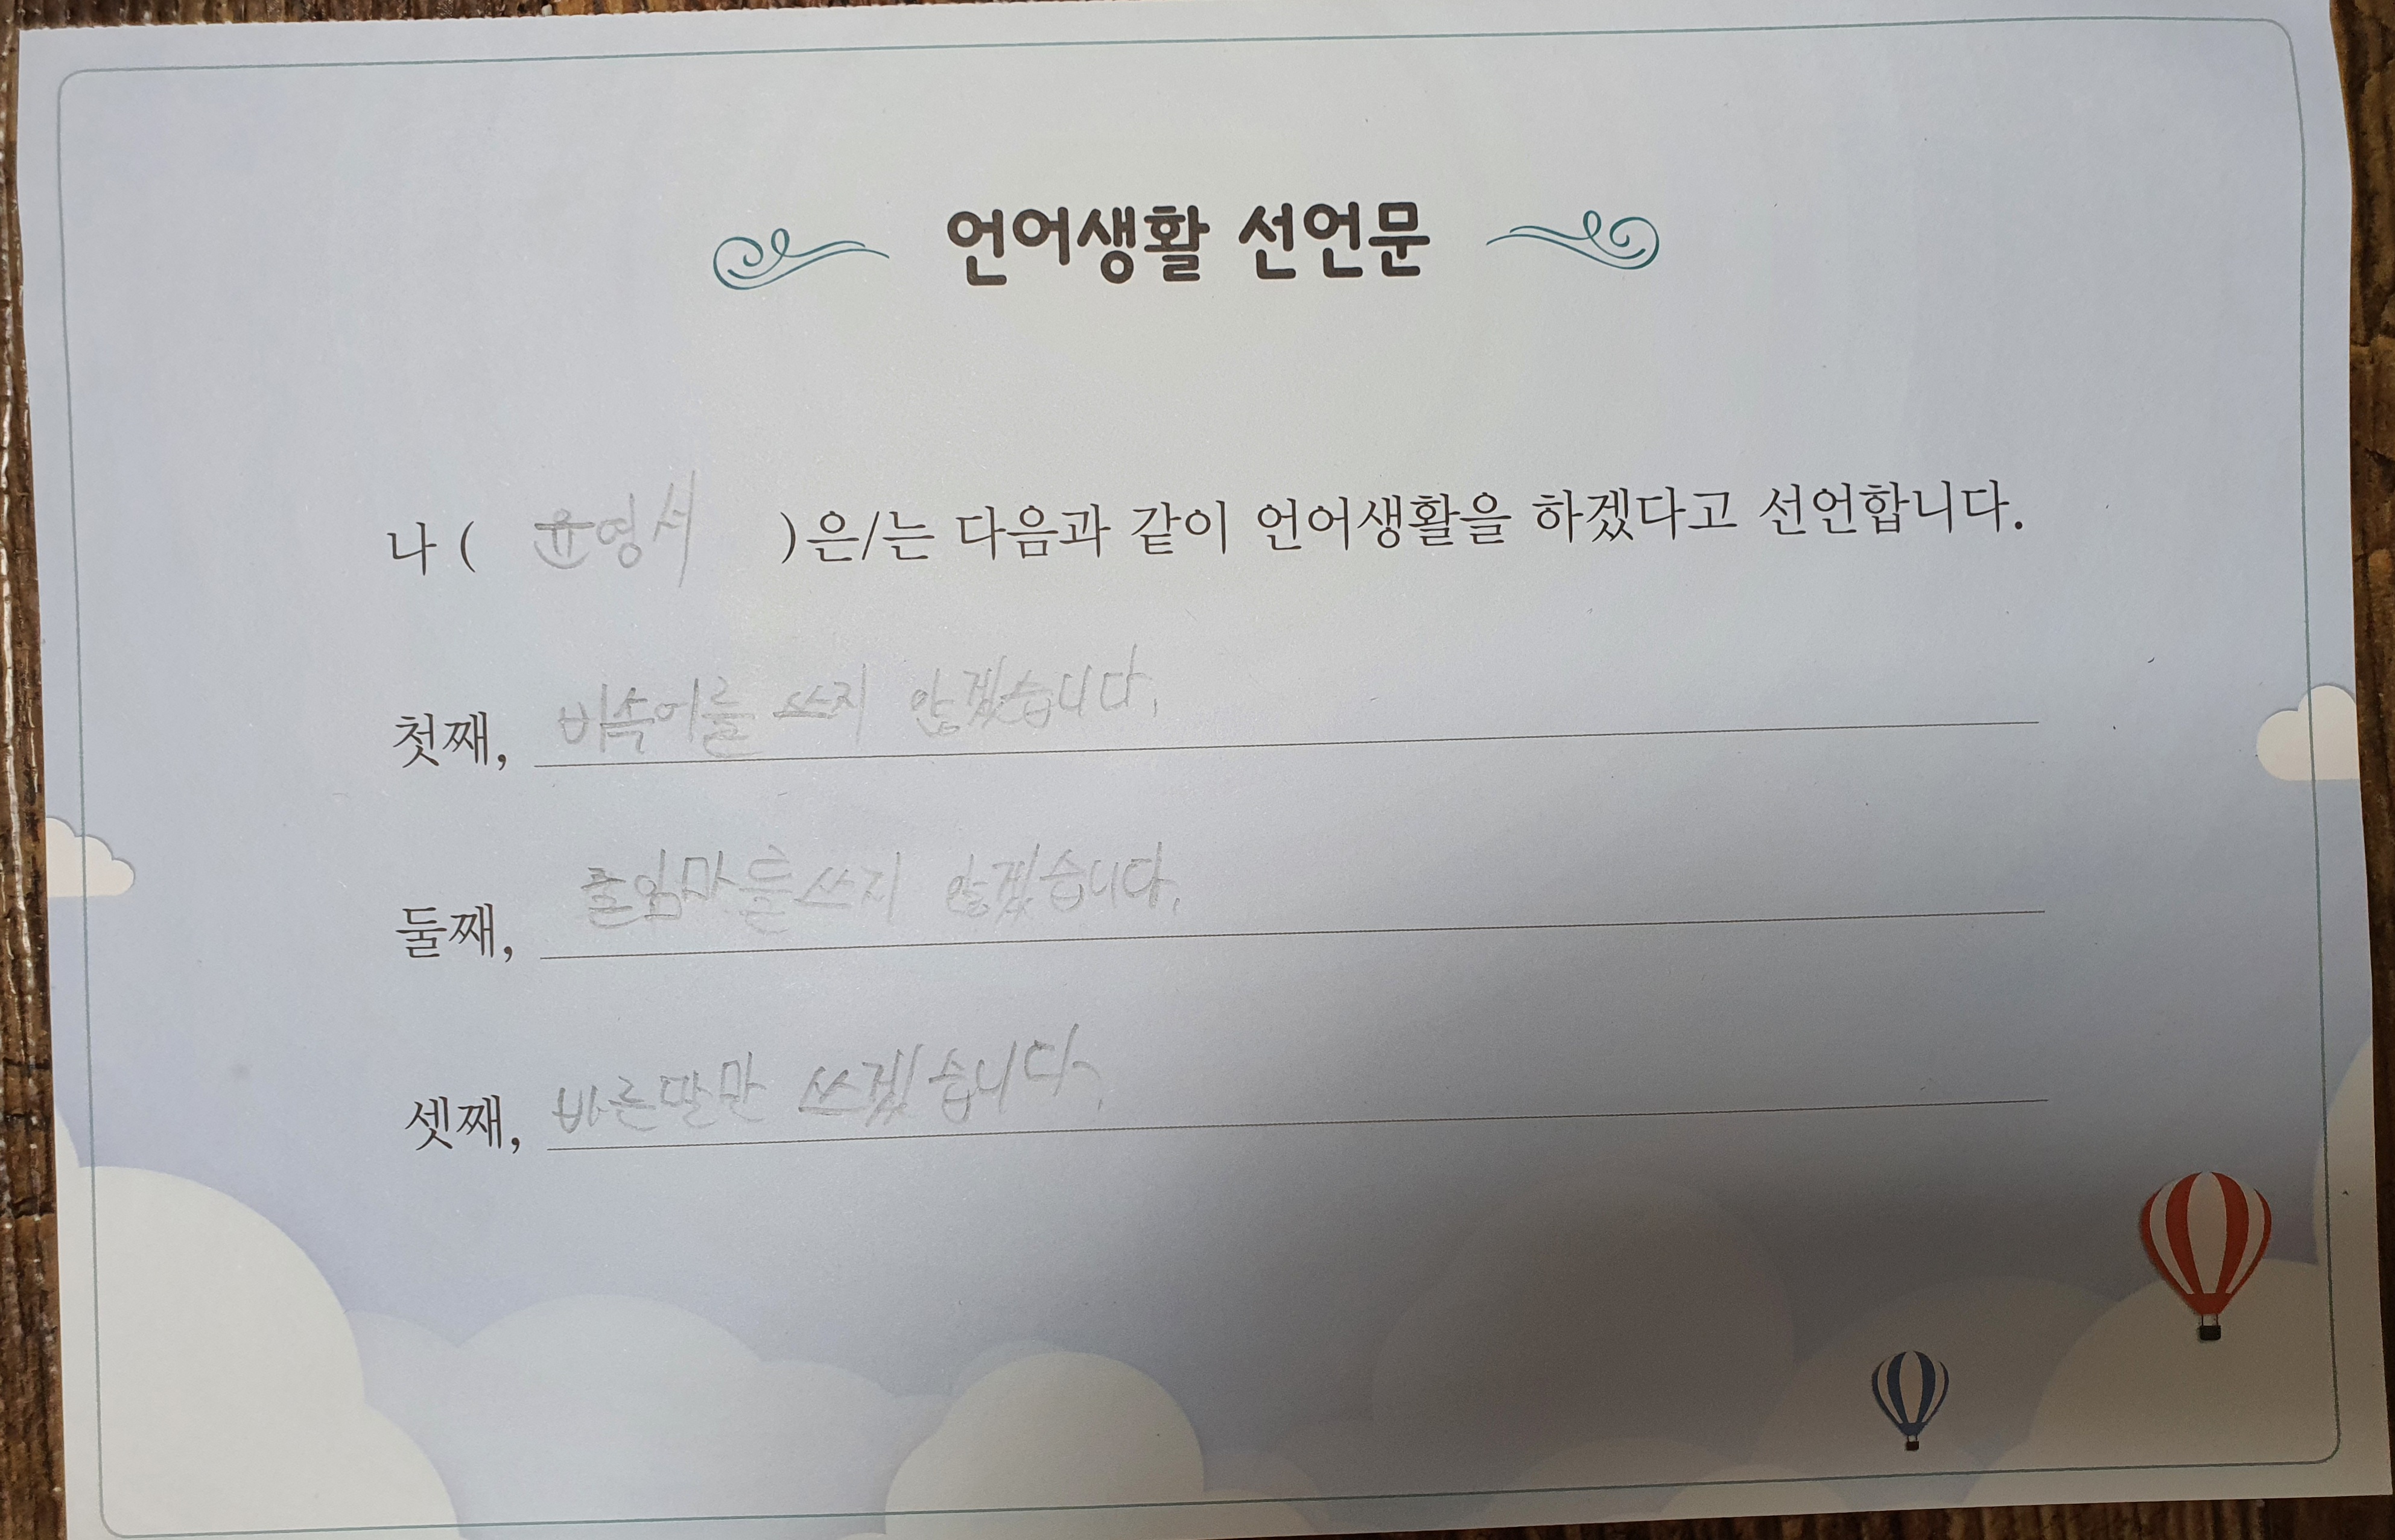 언어생활 선언문
나 ( 윤영서 )은/는 다음과 같이 언어생활을 하겠다고 선언합니다.
첫째, 비속어를 쓰지 않겠습니다.
둘째, 쓰지 않겠습니다.
셋째, 바른말만 쓰겠습니다.